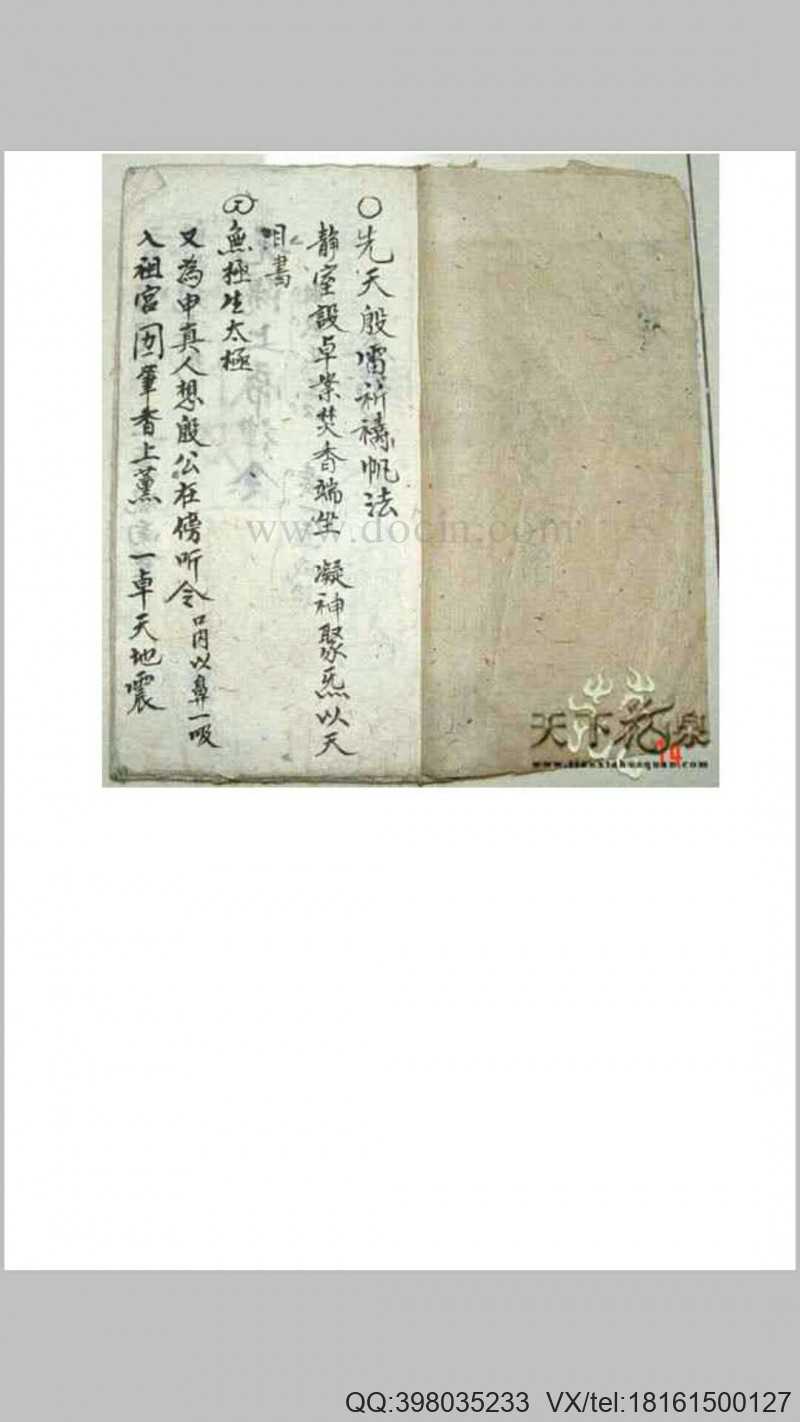 ○先天殷雷祈禱帆法
靜室設卓案焚香端坐 凝神聚炁以天
目書
無極生太極
又為申真人想殷公在傍听令口內以鼻一吸
入祖宮 筆香上薰 一卓天地震
www.docin.com
天下花泉
www.tianxiahuaquan.com
14
QQ:398035233 VX/tel:18161500127